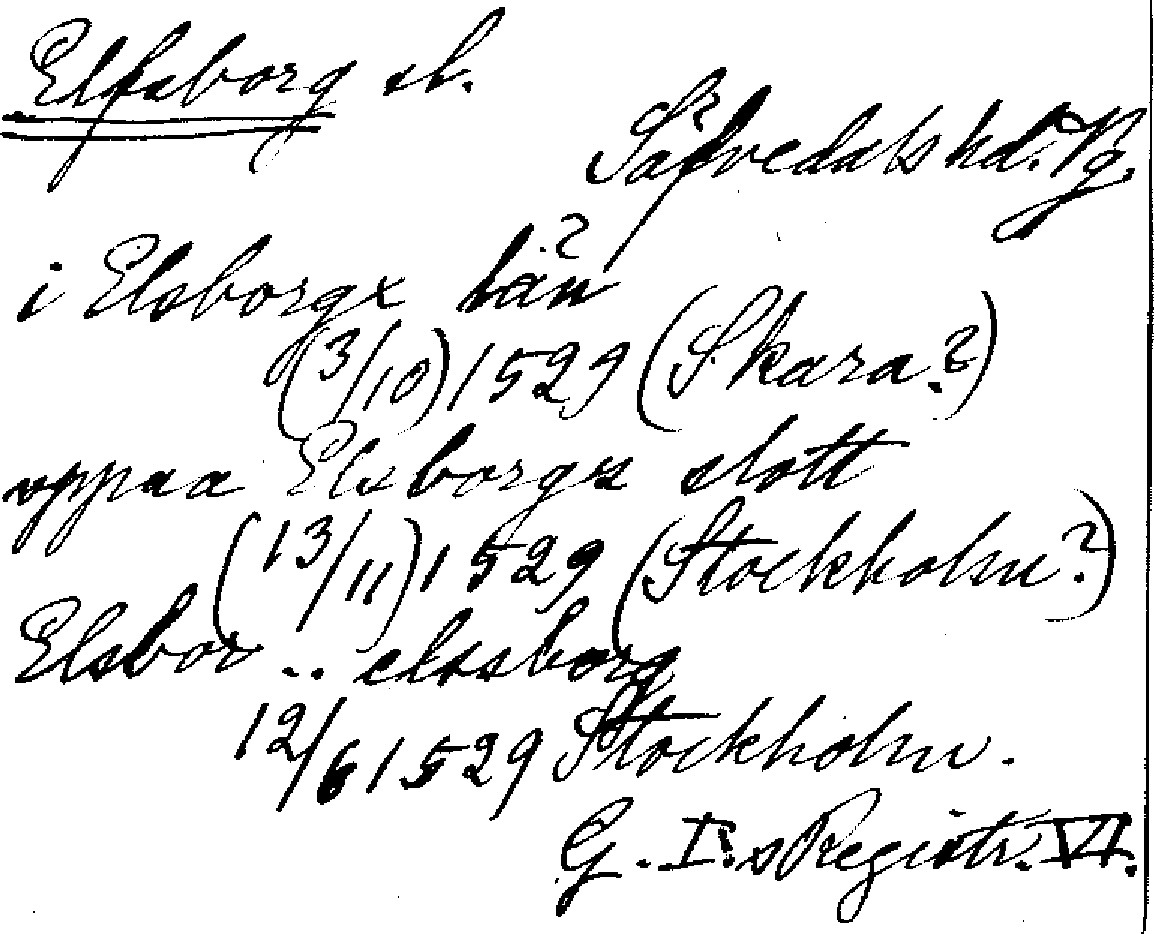 Elfsborg sl.
Säfvedals hd. Vg.
i Elsborgx län
(3/10) 1529 (Skara?)
vppaa Elsborgx slott
(13/11) 1529 (Stockholm?)
Elsbor .. elssborg
12/6 1529 Stockholm.
G. I:s Registr. VI.